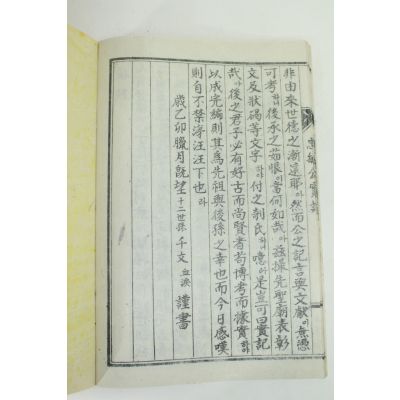 非由來世德之漸遠耶아然而公之記言與文獻이無憑
可考하니後承之茹恨이當何如哉아玆據先聖廟表彰
文及狀碣等文字하야付之剞氏하니噫라是豈可曰實記
哉아後之君子必有好古而尚賢者苟博考而據實하야
以成完編則其爲先祖與後孫之幸也而今日感嘆
則自不禁涕汪汪下也라
歲乙卯臘月旣望十二世孫千文血淚謹書
忠 公實記